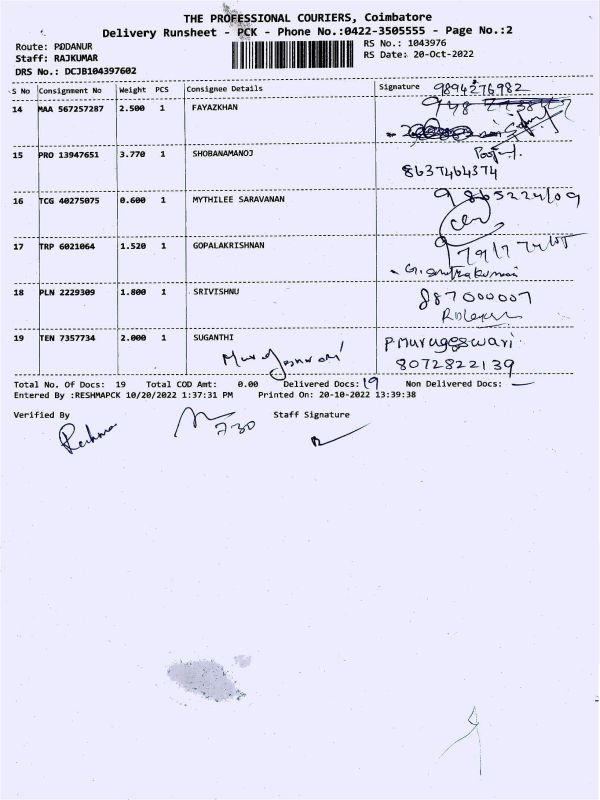 THE PROFESSIONAL COURIERS, Coimbatore
Delivery Runsheet - PCK - Phone No.:0422-3505555 - Page No.:2
Route: PODANUR
RS No.: 1043976
Staff: RAJKUMAR
RS Date: 20-Oct-2022
DRS No.: DCJB104397602
S No Consignment No Weight PCS Consignee Details Signature
9894276982
14 MAA 567257287 2.500 1 FAYAZKHAN
15 PRO 13947651 3.770 1 SHOBANAMANOJ
8637464374
16 TCG 40275075 0.600 1 MYTHILEE SARAVANAN
17 TRP 6021064 1.520 1 GOPALAKRISHNAN
18 PLN 2229309 1.800 1 SRIVISHNU
887000007
19 TEN 7357734 2.000 1 SUGANTHI P Murugeswari
8072822139
Total No. Of Docs: 19 Total COD Amt: 0.00 Delivered Docs: 19 Non Delivered Docs: —
Entered By :RESHMAPCK 10/20/2022 1:37:31 PM Printed On: 20-10-2022 13:39:38
Verified By Staff Signature
Reshma 7-30